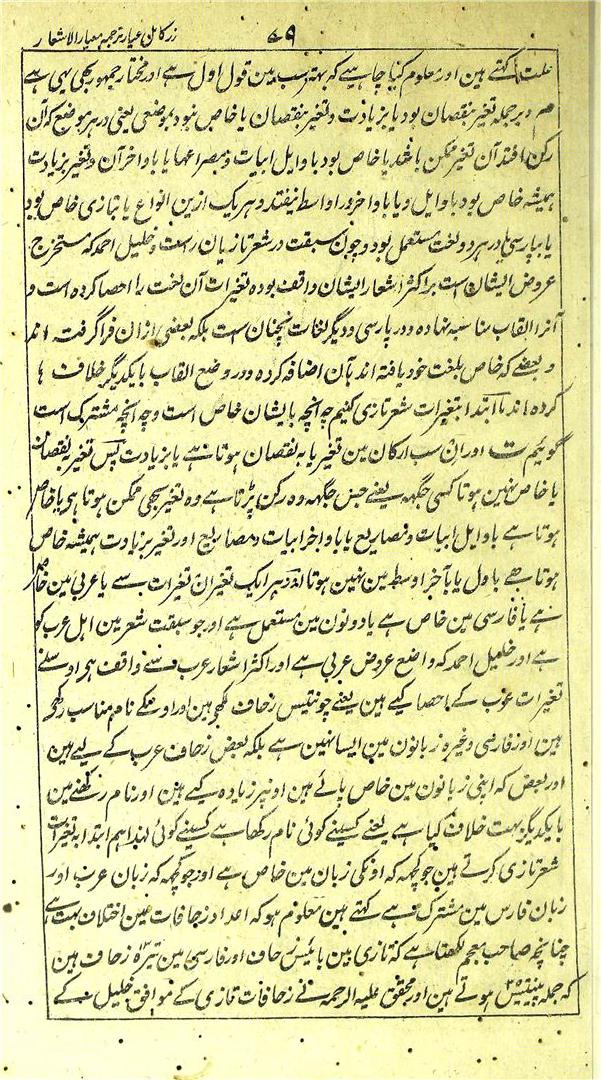 زر کامل عیار ترجمہ معیار الاشعار ۷۹
علت کہتے ہین اور معلوم کرنا چاہیے کہ بہتر سب مین قول اول ہے اور مختار جمہور بھی یہی ہے
م و بر جملہ تغیر بنقصان بود یا بزیادت و تغیر بنقصان یا خاص نبود بموضعی یعنی در ہر موضع کہ آن
رکن افتد آن تغیر ممکن باشد یا خاص بود باوایل ابیات و مصراعہا یا باواخر آن و تغیر بزیادت
ہمیشہ خاص بود باوایل و یا باواخر و در اواسط نیفتد و ہر یک ازین انواع یا بتازی خاص بود
یا بپارسی یا در ہر دو لغت مستعمل بود و چون سبقت در شعر تازیان راست و خلیل احمد کہ مستخرج
عروض ایشان است بر اکثر اشعار ایشان واقف بودہ تغیرات آن لغت را احصا کردہ است و
آنرا القاب مناسبہ نہادہ و در پارسی و دیگر لغات نچنان است بلکہ بعضی ازان فراگرفتہ اند
و بعضے کہ خاص بلغت خود یافتہ اند بآن اضافہ کردہ و در وضع القاب با یکدیگر خلاف ہا
کردہ اند ما ابتدا بتغیرات شعر تازی کنیم چہ آنچہ بایشان خاص است و چہ آنچہ مشترک است
گوئیم ت اور ان سب ارکان مین تغیر یا بہ نقصان ہوتا ہے یا بزیادت پس تغیر بنقصان
یا خاص نہین ہوتا کسی جگہہ یعنے جس جگہہ وہ رکن پڑتا ہے وہ تغیر بھی ممکن ہوتا ہی یا خاص
ہوتا ہے باوایل ابیات و مصاریع یا باواخر ابیات و مصاریع اور تغیر بزیادت ہمیشہ خاص
ہوتا ہے باول یا بآخر اوسط مین نہین ہوتا اور ہر ایک تغیر ان تغیرات سے یا عربی مین خاص
ہے یا فارسی مین خاص ہے یا دونون مین مستعمل ہے اور جو سبقت شعر مین اہل عرب کو
ہے اور خلیل احمد کہ واضع عروض عربی ہے اور اکثر اشعار عرب سے واقف ہی اوسنے
تغیرات عرب کے احصا کیے ہین یعنے چونتیس زحاف لکھی ہین اور اونکے نام مناسب رکھے
ہین اور فارسی وغیرہ زبانون مین ایسا نہین ہے بلکہ بعض زحاف عرب کے لیے ہین
اور بعض کہ اپنی زبانون مین خاص پائے ہین اونپر زیادہ کیے ہین اور نام رکھنے مین
با یکدیگر بہت خلاف کیا ہے یعنے کسینے کوئی نام رکھا ہے کسینے کوئی لہذا ہم ابتدا بہ تغیرات
شعر تازی کرتے ہین جو کچھہ کہ اونکی زبان مین خاص ہے اور جو کچھہ کہ زبان عرب اور
زبان فارس مین مشترک ہے کہتے ہین معلوم ہو کہ اعداد زحافات مین اختلاف بہت ہے
چنانچہ صاحب معجم لکھتا ہے کہ تازی مین بائیس زحاف اور فارسی مین تیرہ زحاف ہین
کہ جملہ پینتیس ۳۵ ہوتے ہین اور محقق علیہ الرحمہ نے زحافات تازی کے موافق خلیل کے